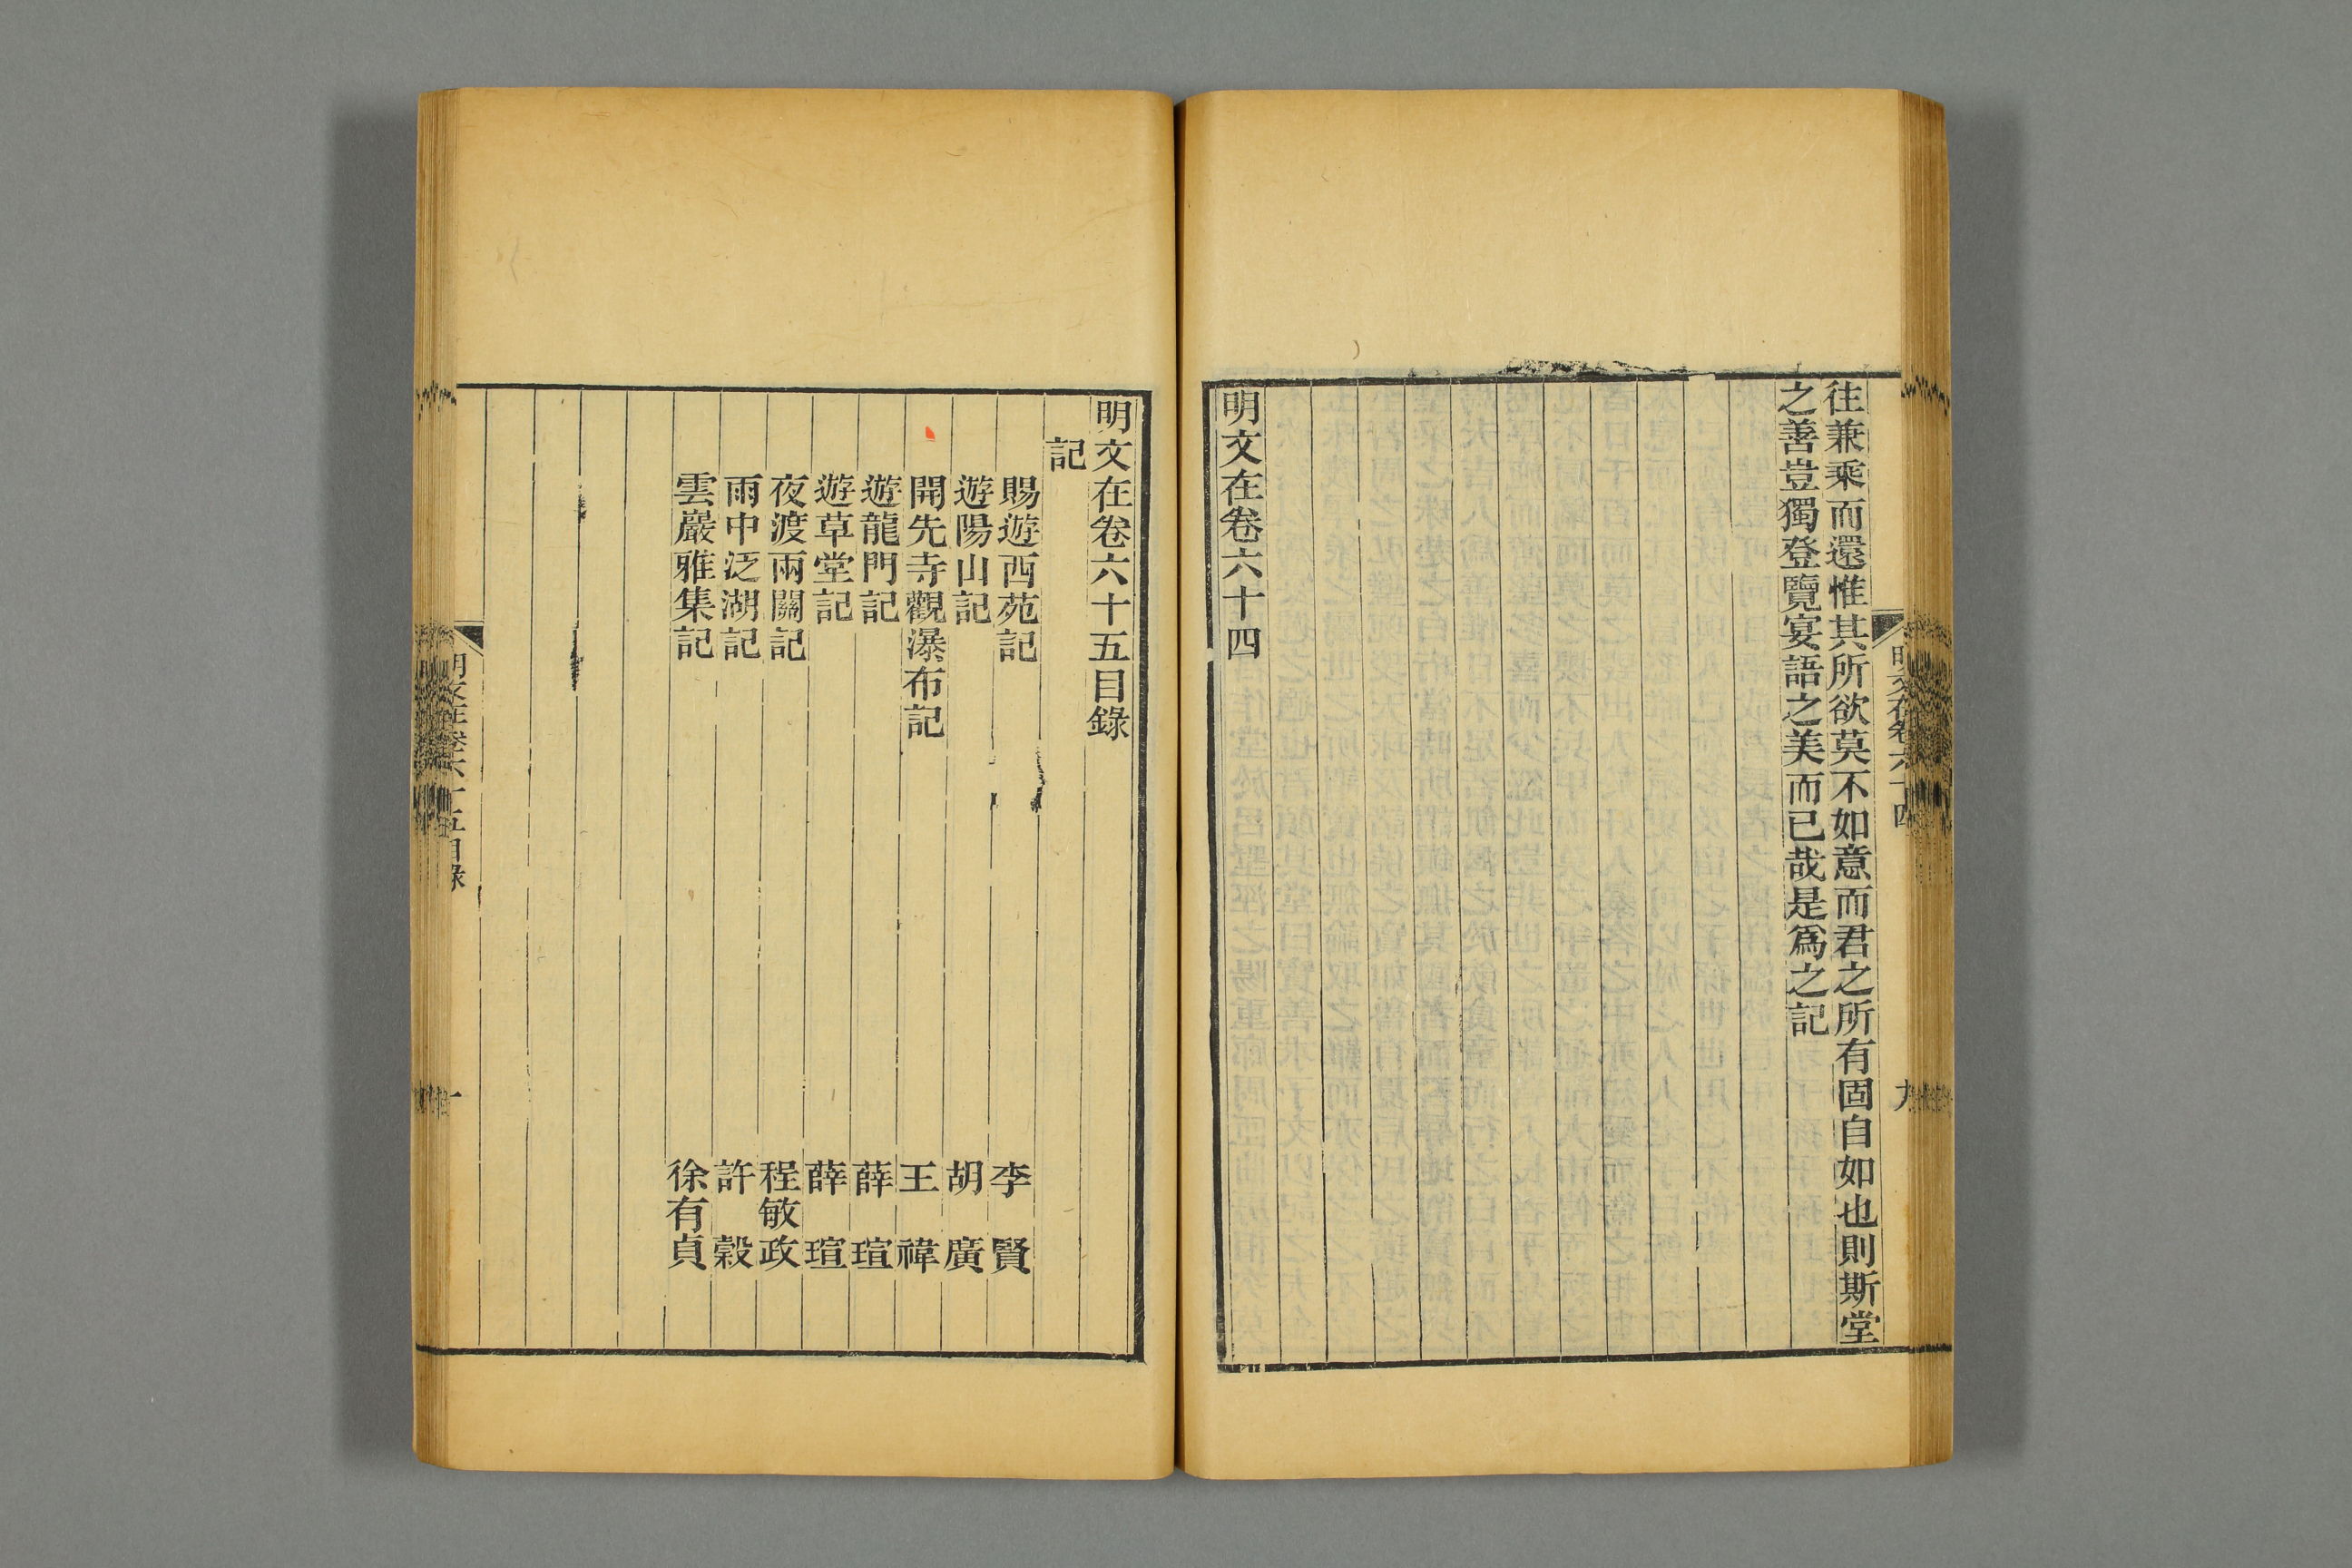 往兼乘而還惟其所欲莫不如意而君之所有固自如也則斯堂
之善豈獨登覽宴語之美而已哉是爲之記
明文在卷六十四
明文在卷六十四
九
明文在卷六十五目錄
記
賜遊西苑記 李賢
遊陽山記 胡廣
開先寺觀瀑布記 王禕
遊龍門記 薛瑄
遊草堂記 薛瑄
夜渡兩關記 程敏政
雨中泛湖記 許穀
雲巖雅集記 徐有貞
明文在卷六十五目錄
一